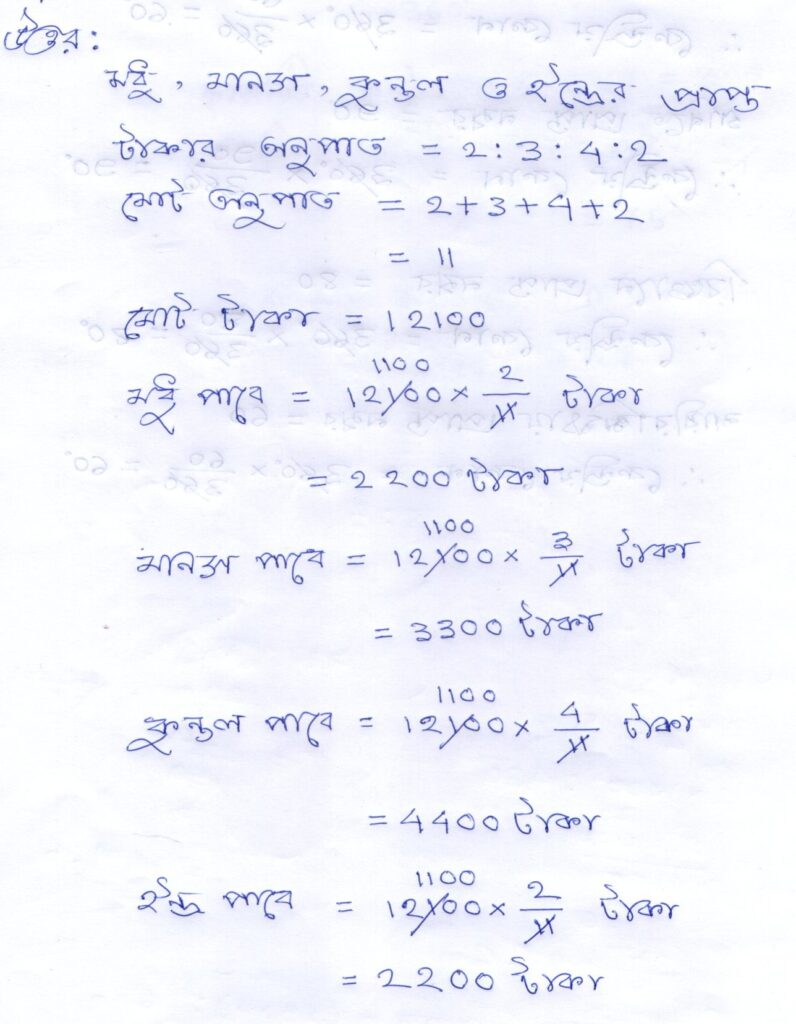 উত্তর:
মধু, মানস, কুন্তল ও ইন্দ্রের প্রাপ্ত
টাকার অনুপাত = 2:3:4:2
মোট অনুপাত = 2+3+4+2
= 11
মোট টাকা = 12100
1100
মধু পাবে = 12100 × 2/11 টাকা
= 2200 টাকা
1100
মানস পাবে = 12100 × 3/11 টাকা
= 3300 টাকা
1100
কুন্তল পাবে = 12100 × 4/11 টাকা
= 4400 টাকা
1100
ইন্দ্র পাবে = 12100 × 2/11 টাকা
= 2200 টাকা